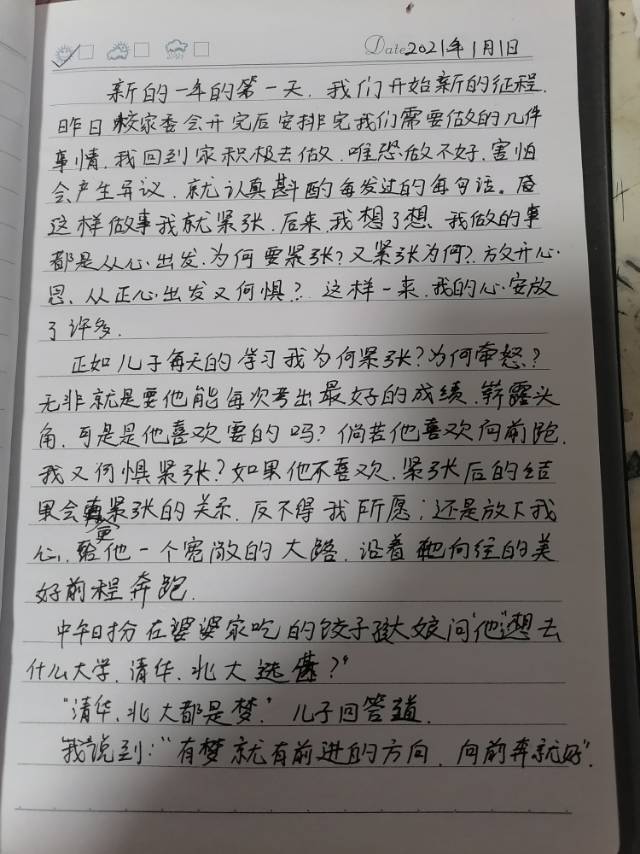 Date 2021年1月1日
新的一年的第一天，我们开始新的征程.
昨日校家委会开完后安排完我们需要做的几件
事情，我回到家积极去做，唯恐做不好，害怕
会产生异议，就认真斟酌每发过的每句话。
这样做事我就紧张，后来，我想了想，我做的事
都是从心出发，为何要紧张？又紧张为何？放开心
思，从正心出发又何惧？这样一来，我的心安放
了许多.
正如儿子每天的学习我为何紧张？为何牵怒？
无非就是要他能每次考出最好的成绩，崭露头
角，可是是他喜欢要的吗？倘若他喜欢向前跑，
我又何惧紧张？如果他不喜欢，紧张后的结
果会更紧张的关系，反不得我所愿；还是放下我
心，给他一个宽敞的大路，沿着他向往的美
好前程奔跑.
中午时分在婆婆家吃的饺子，大娘问"他"想去
什么大学，清华、北大选谁？"
"清华、北大都是梦."儿子回答道.
我说到："有梦就有前进的方向，向前奔就好".